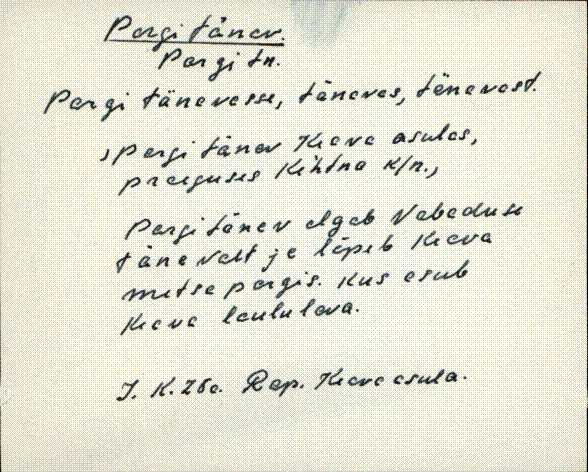 Pargi tänav.
Pargi tn.
Pargi tänavasse, tänavas, tänavast.
, Pargi tänav Keava asulas,
praeguses Kehtna k/n.,
Pargi tänav algab Vabaduse
tänavalt ja lõpeb Keava
metsa pargis. Kus asub
Keava laululava.
J. K. 26a. Rap. Keava asula.